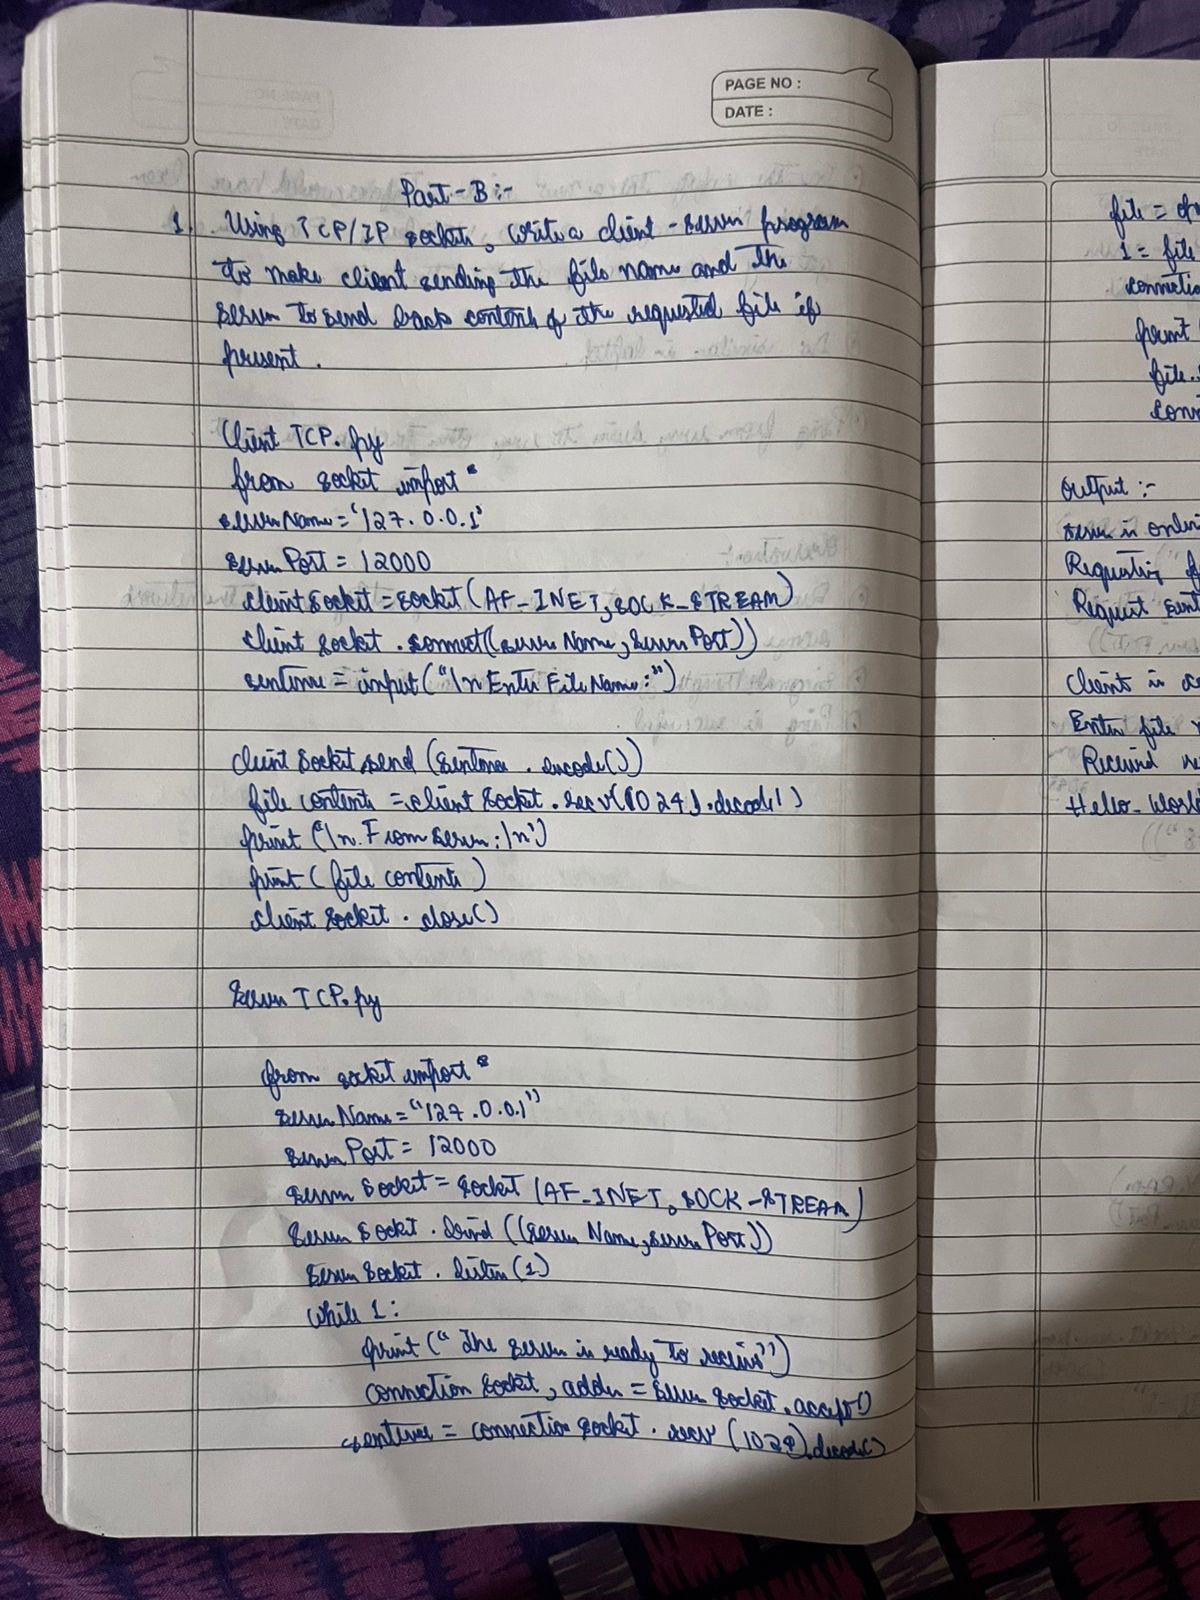 PAGE NO :
DATE :
Part-B :-
1. Using TCP/IP sockets, write a client-server program
to make client sending the file name and the
server to send back contents of the requested file if
present.
Client TCP.py
from socket import *
serverName = '127.0.0.1'
serverPort = 12000
clientSocket = socket(AF_INET, SOCK_STREAM)
clientSocket.connect((serverName, serverPort))
sentence = input("\n Enter File Name:")
clientSocket.send(sentence.encode())
file contents = clientSocket.recv(1024).decode()
print ('\n. From server:\n')
print (file contents)
client socket . close()
Server TCP.py
from socket import *
serverName = "127.0.0.1"
serverPort = 12000
server Socket = socket (AF_INET, SOCK_STREAM)
server Socket . bind ((serverName, serverPort))
server Socket . listen (1)
while 1:
print (" The server is ready to receive")
connection Socket, addr = server socket. accept()
sentence = connection socket . recv (1024).decode()
file =
1 = file
print
file.
Output :-
server is
Requesting
Request sent
Client is
Enter file
Received
Hello-World